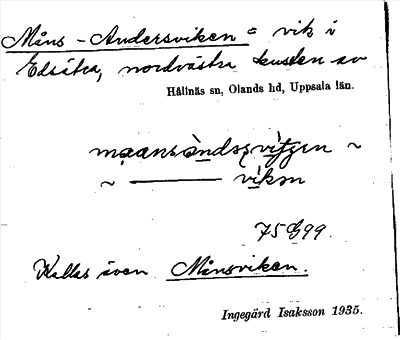 Måns-Andersviken = vik i
Edsätra, nordvästra kusten av
Hållnäs sn, Olands hd, Uppsala län.
~ ——— vìkən
75 G 99.
Kallas även Månsviken.
Ingegärd Isaksson 1935.